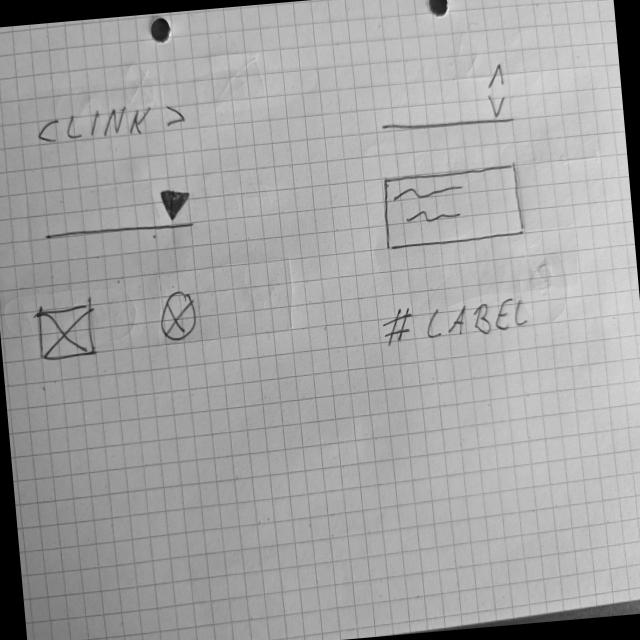 <LINK>
# LABEL